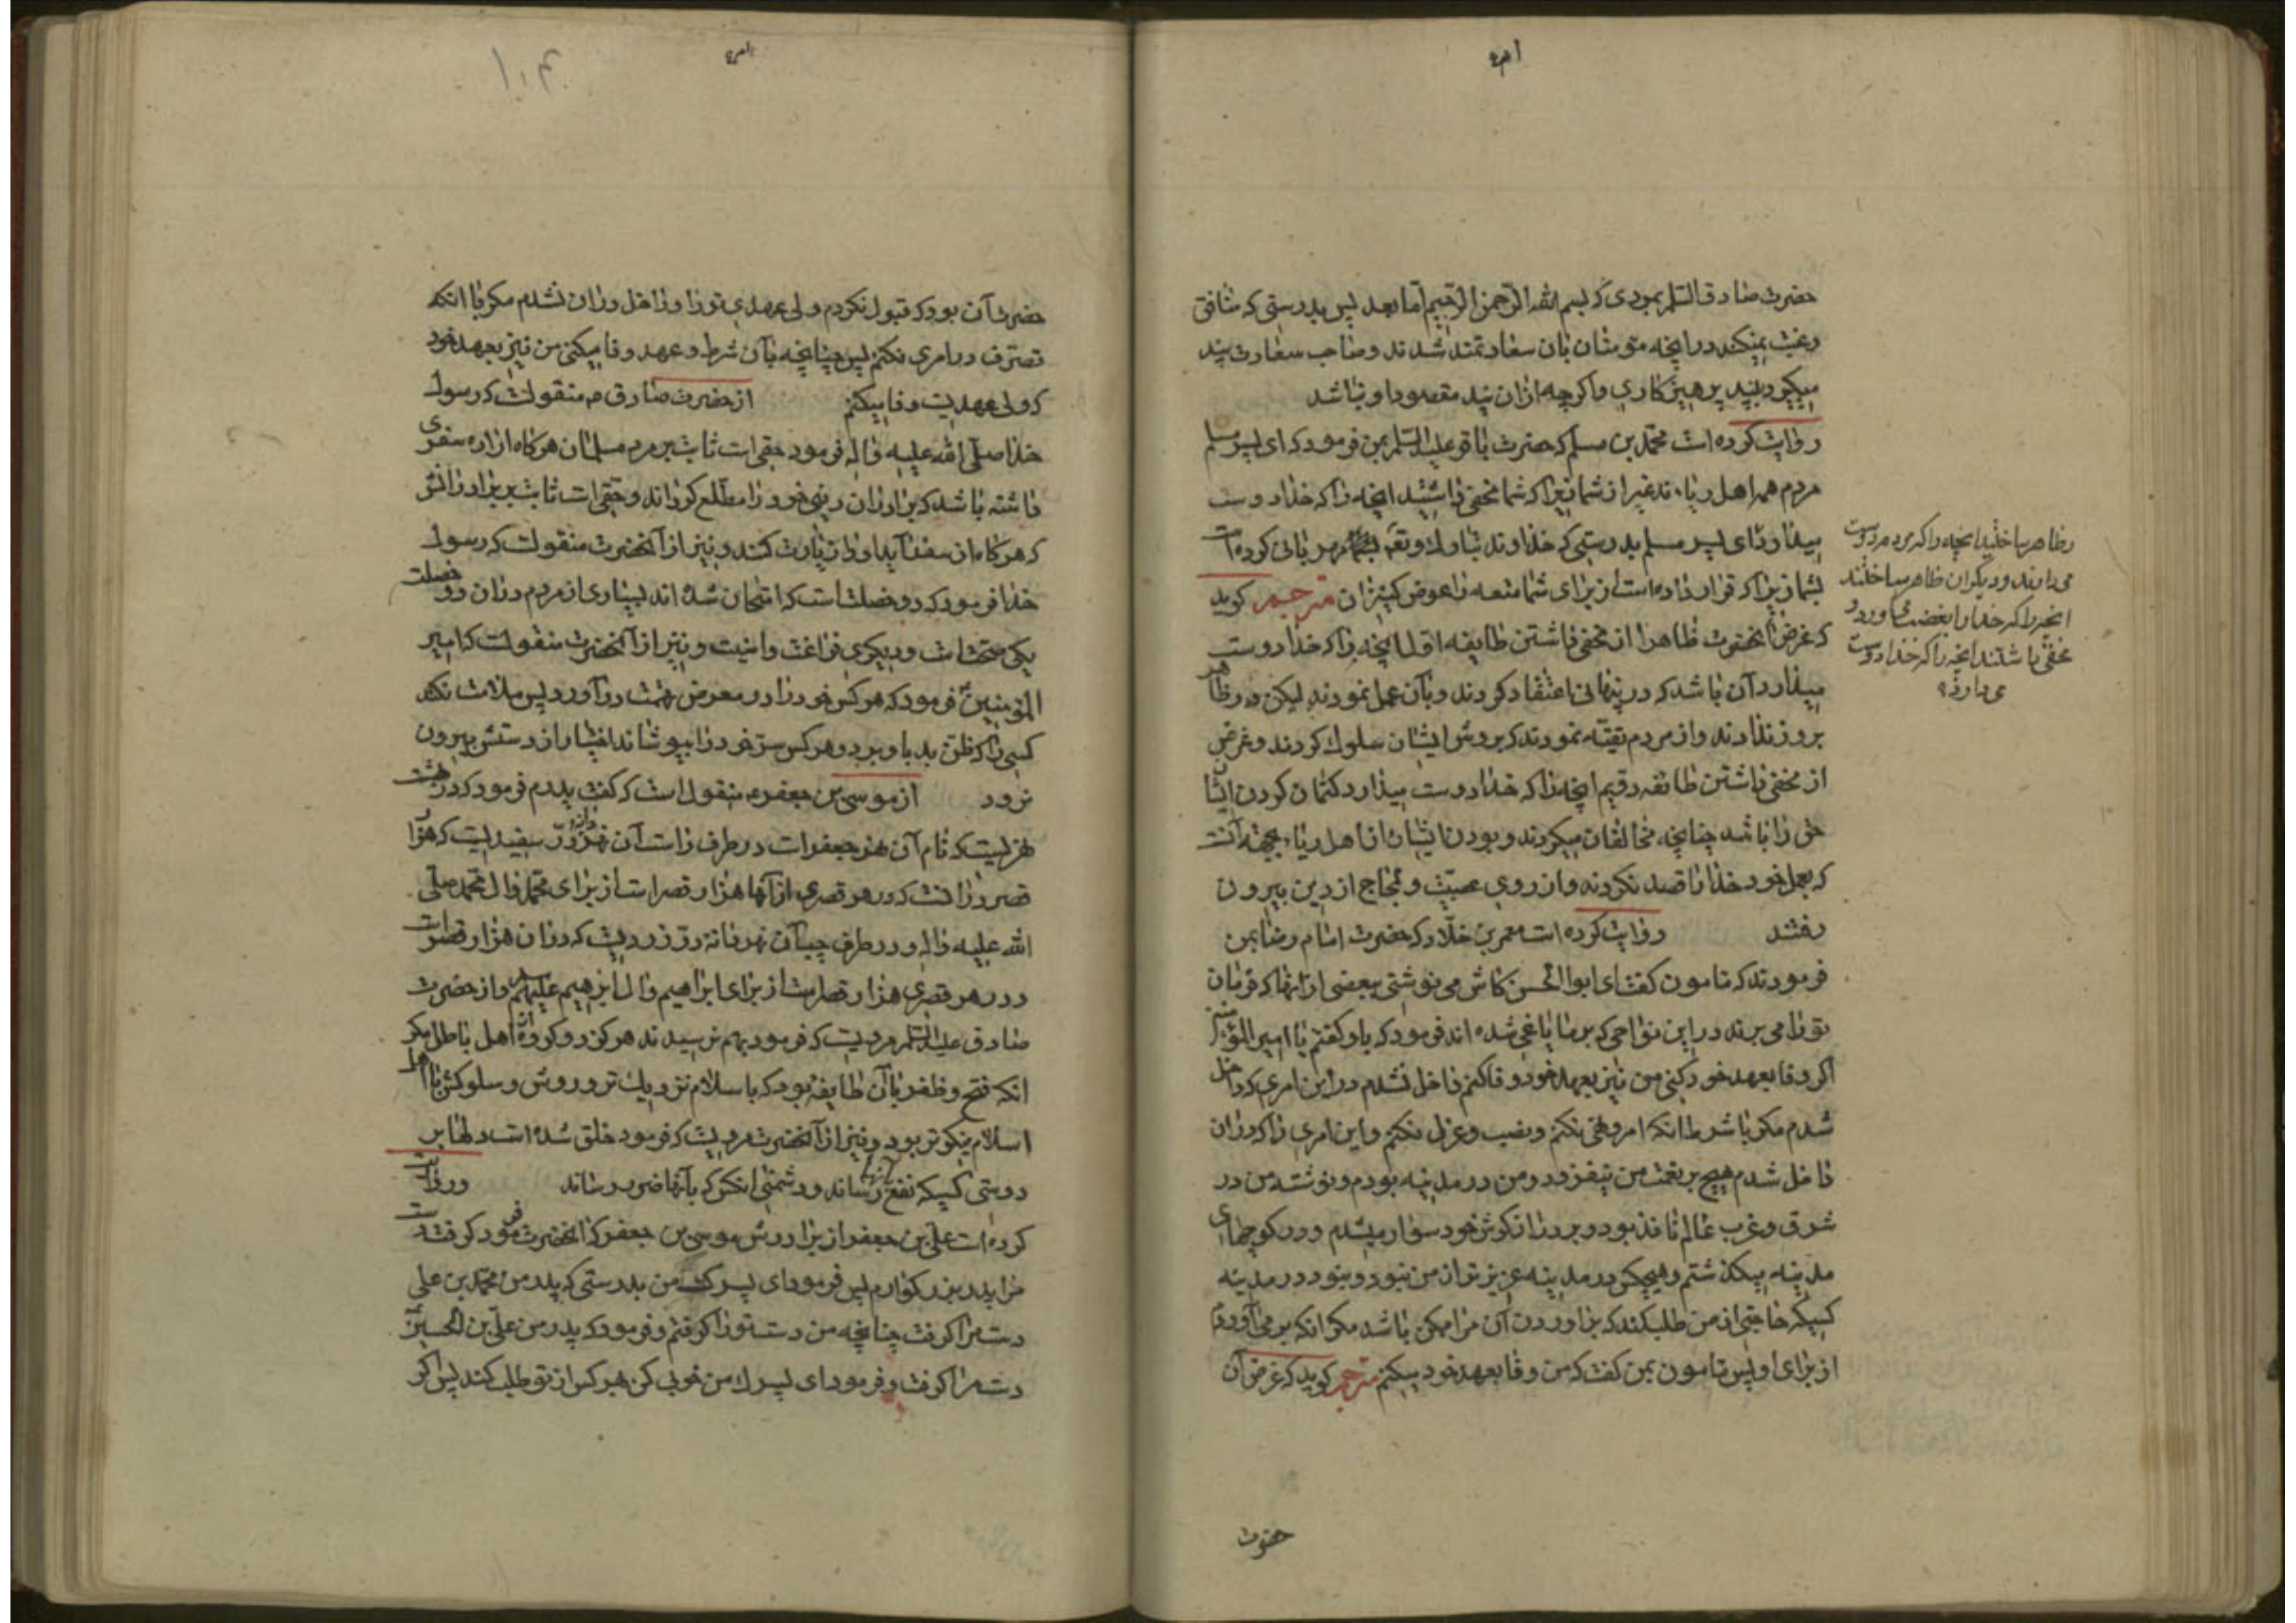 حضرت صادق السلم بمردی که بسم الله الرحمن الرحیم اما بعد پس بدرستی که منافق
رغبت نمیکند در انچه مومنان بان سعادتمند شدند و صاحب سعادت پند
میگیرد بپند پرهیزکاری و اگرچه ازان پند مقصود او باشد
روایت کرده است محمد بن مسلم که حضرت باقر علیه السلم بمن فرمود که ای پسر مسلم
مردم همه اهل ریاءند غیر از شما زیرا که شما مخفی داشتید انچه را که خدا دوست
میدارد ای پسر مسلم بدرستی که خداوند تبارک و تعه بشما مهربانی کرده است
بشما زیرا که قرار داده است از برای شما متعه را عوض کنیزان مترجم کوید
که غرض انحضرت ظاهرا از مخفی داشتن طایفه اول انچه را که خدا دوست
میدارد آن باشد که در پنهانی اعتقاد کردند و بآن عمل نمودند لیکن در ظاهر
بروز ندادند و از مردم تقیه نمودند که بروش ایشان سلوک کردند و غرض
از مخفی داشتن طائفه دویم انچه را که خدا دوست میدارد کتمان کردن ایشان
حق را باشد چنانچه مخالفان میکردند و بودن ایشان از اهل ریاء بجهة آنست
که بعمل خود خدا را قصد نکردند و از روی عصبیت و لجاج از دین بیرون
رفتند روایت کرده است معمر بن خلاد که حضرت امام رضا بمن
فرمودند که مامون کفت ای ابوالحسن کاش می نوشتی ببعضی از انها که فرمان
تو را می برند در این نواحی که بر ما یاغی شده اند فرمود که باو کفتم یا امیر المؤمنین
اکر وفا بعهد خود کنی من نیز بعهد خود وفا کنم داخل نشدم در این امری که داخل
شدم مکر با شرط انکه امر و نهی نکنم و نصب و عزل نکنم و این امری را که دران
داخل شدم هیچ بر نعمت من نیفزود و من در مدینه بودم و نوشته من در
شرق و غرب عالم نافذ بود و بر دراز کوش خود سوار میشدم و در کوچهای
مدینه میکذشتم و هیچکس در مدینه عزیزتر از من نبود و نبود در مدینه
کسیکه حاجتی از من طلب کند که براوردن آن مرا ممکن باشد مکر انکه بر می آوردم
از برای او پس مامون بمن کفت که من وفا بعهد خود میکنم مترجم کوید که غرض آن
حضرت
و ظاهر ساختید انچه را که مردم دوست
می دارند و دیکران ظاهر ساختند
انچه را که خدا را بغضب می اورد و
مخفی داشتند انچه را که خدا دوست
می دارد
حضرت آن بود که قبول نکردم ولی عهدی تو را و داخل دران نشدم مکر با انکه
تصرف در امری نکنم پس چنانچه بآن شرط و عهد وفا میکنی من نیز بعهد خود
که ولی عهدیت وفا میکنم از حضرت صادق م منقولست که رسول
خدا صلی الله علیه و اله فرمود حقی است ثابت بر مرد مسلمان هرکاه اراده سفری
داشته باشد که برادران دینی خود را مطلع کرداند و حقی است ثابت بر برادرانش
که هرکاه از سفر آید او را زیارت کنند و نیز از آنحضرت منقولست که رسول
خدا فرمود که دو خصلت است که امتحان شده اند بسیاری از مردم دران دو خصلت
یکی صحتست و دیکری فراغت و امنیت و نیز از آنحضرت منقولست که امیر
المؤمنین فرمود که هر کس خود را در معرض تهمت دراورد پس ملامت نکند
کسی را که ظن بد باو برد و هر کس سر خود را بپوشاند اختیار از دستش بیرون
نرود از موسی بن جعفر م منقول است که کفت پدرم فرمود که در بهشت
نهریست که نام آن نهر جعفر است در طرف راست آن نهر دانه در سفیدیست که هزار
قصر درانست که در هر قصری از آنها هزار قصر است از برای محمد و ال محمد صلی
الله علیه و اله و در طرف چپ آن نهر دانه در زردیست که دران هزار قصر است
و در هر قصری هزار قصر است از برای ابراهیم و ال ابراهیم علیهم السلم و از حضرت
صادق علیه السلم مرویست که فرمود بهم نرسیدند هرکز دو کروه از اهل باطل مکر
انکه فتح و ظفر با آن طایفه بود که باسلام نزدیک تر و روش و سلوکش با اهل
اسلام نیکوتر بود و نیز از آنحضرت مرویست که فرمود خلق شده است دلها بر
دوستی کسیکه نفع بآنها رساند و دشمنی انکس که بآنها ضرر رساند و روایت
کرده است علی بن جعفر از برادرش موسی بن جعفر که انحضرت فرمود که کرفت دست
مرا پدر بزرکوارم پس فرمود ای پسرک من بدرستی که پدر من محمد بن علی
دست مرا کرفت چنانچه من دست تو را کرفتم و فرمود که پدر من علی بن الحسین
دست مرا کرفت و فرمود ای پسرک من خوبی کن هر کس از تو طلب کند پس اکر